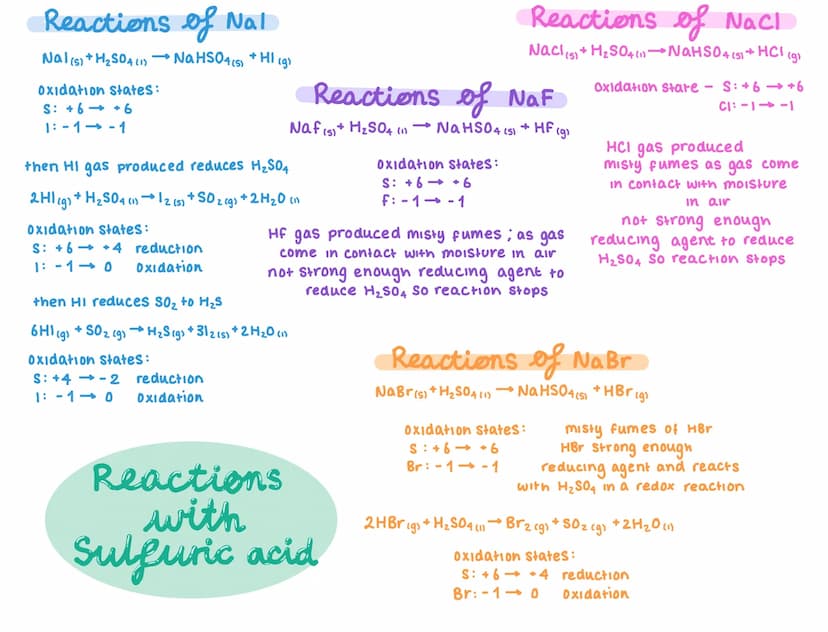 Reactions of NaI
NaI(s) + H₂SO₄(l) → NaHSO₄(s) + HI(g)
Oxidation states:
S: +6 → +6
I: -1 → -1
then HI gas produced reduces H₂SO₄
2HI(g) + H₂SO₄(l) → I₂(s) + SO₂(g) + 2H₂O(l)
Oxidation states:
S: +6 → +4 reduction
I: -1 → 0 Oxidation
then HI reduces SO₂ to H₂S
6HI(g) + SO₂(g) → H₂S(g) + 3I₂(s) + 2H₂O(l)
Oxidation states:
S: +4 → -2 reduction
I: -1 → 0 Oxidation
Reactions of NaF
NaF(s) + H₂SO₄(l) → NaHSO₄(s) + HF(g)
Oxidation states:
S: +6 → +6
F: -1 → -1
HF gas produced misty fumes ; as gas
come in contact with moisture in air
not strong enough reducing agent to
reduce H₂SO₄ so reaction stops
Reactions of NaCl
NaCl(s) + H₂SO₄(l) → NaHSO₄(s) + HCl(g)
Oxidation state - S: +6 → +6
Cl: -1 → -1
HCl gas produced
misty fumes as gas come
in contact with moisture
in air
not strong enough
reducing agent to reduce
H₂SO₄ so reaction stops
Reactions of NaBr
NaBr(s) + H₂SO₄(l) → NaHSO₄(s) + HBr(g)
Oxidation states:
S: +6 → +6
Br: -1 → -1
misty fumes of HBr
HBr strong enough
reducing agent and reacts
with H₂SO₄ in a redox reaction
2HBr(g) + H₂SO₄(l) → Br₂(g) + SO₂(g) + 2H₂O(l)
Oxidation states:
S: +6 → +4 reduction
Br: -1 → 0 Oxidation
Reactions
with
Sulfuric acid